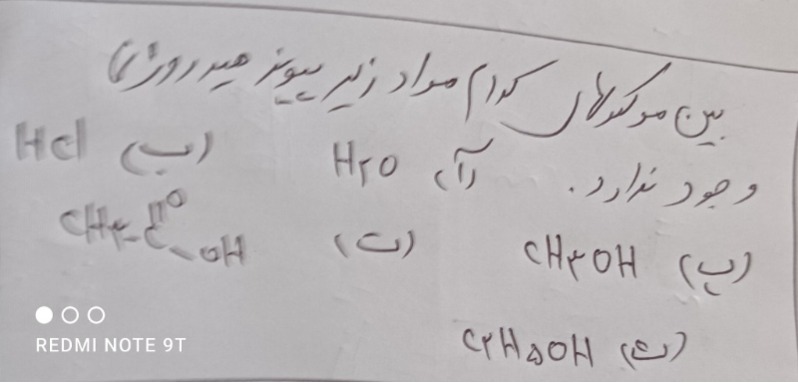 بین مولکولهای کدام مواد زیر پیوند هیدروژنی
وجود ندارد. آ) H۲O ب) HCl
پ) CH۳OH ت) CH۳-C-OH
O
ث) C۲H۵OH
REDMI NOTE 9T